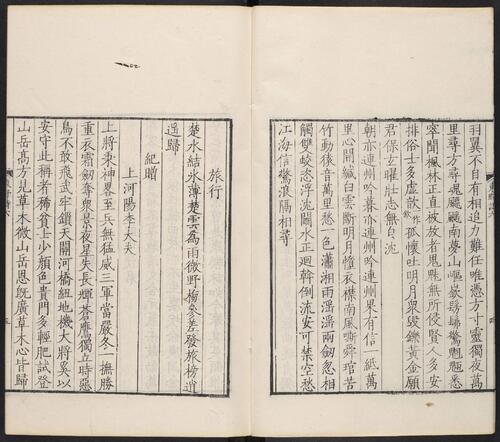 羽翼不自有相追力難任唯憑方寸靈獨夜萬
里尋方尋魂飄颻南夢山嶇嶔髣髴驚魍魎悉
窣聞楓林正直被放者鬼魅無所侵賢人多安
排俗士多虛歆一作欽孤懷吐明月衆毀鑠黃金願
君保玄曜壯志無自沈
朝亦連州吟暮亦連州吟連州果有信一紙萬
里心開緘白雲斷明月墮衣襟南風嘶舜琯苦
竹動猿音萬里愁一色瀟湘雨滛滛兩劒忽相
觸雙蛟恣浮沈鬭水正迴斡倒流安可禁空愁
江海信驚浪隔相尋
旅行
楚水結氷薄楚雲爲雨微野梅參差發旅榜逍
遥歸
紀贈
上河陽李大夫
上將秉神畧至兵無猛威三軍當嚴冬一撫勝
重衣霜劒奪衆景夜星失長輝蒼鷹獨立時惡
鳥不敢飛武牢鎖天關河橋紐地機大將奚以
安守此稱者稀貧士少顏色貴門多輕肥試登
山岳高方見草木微山岳恩旣廣草木心皆歸